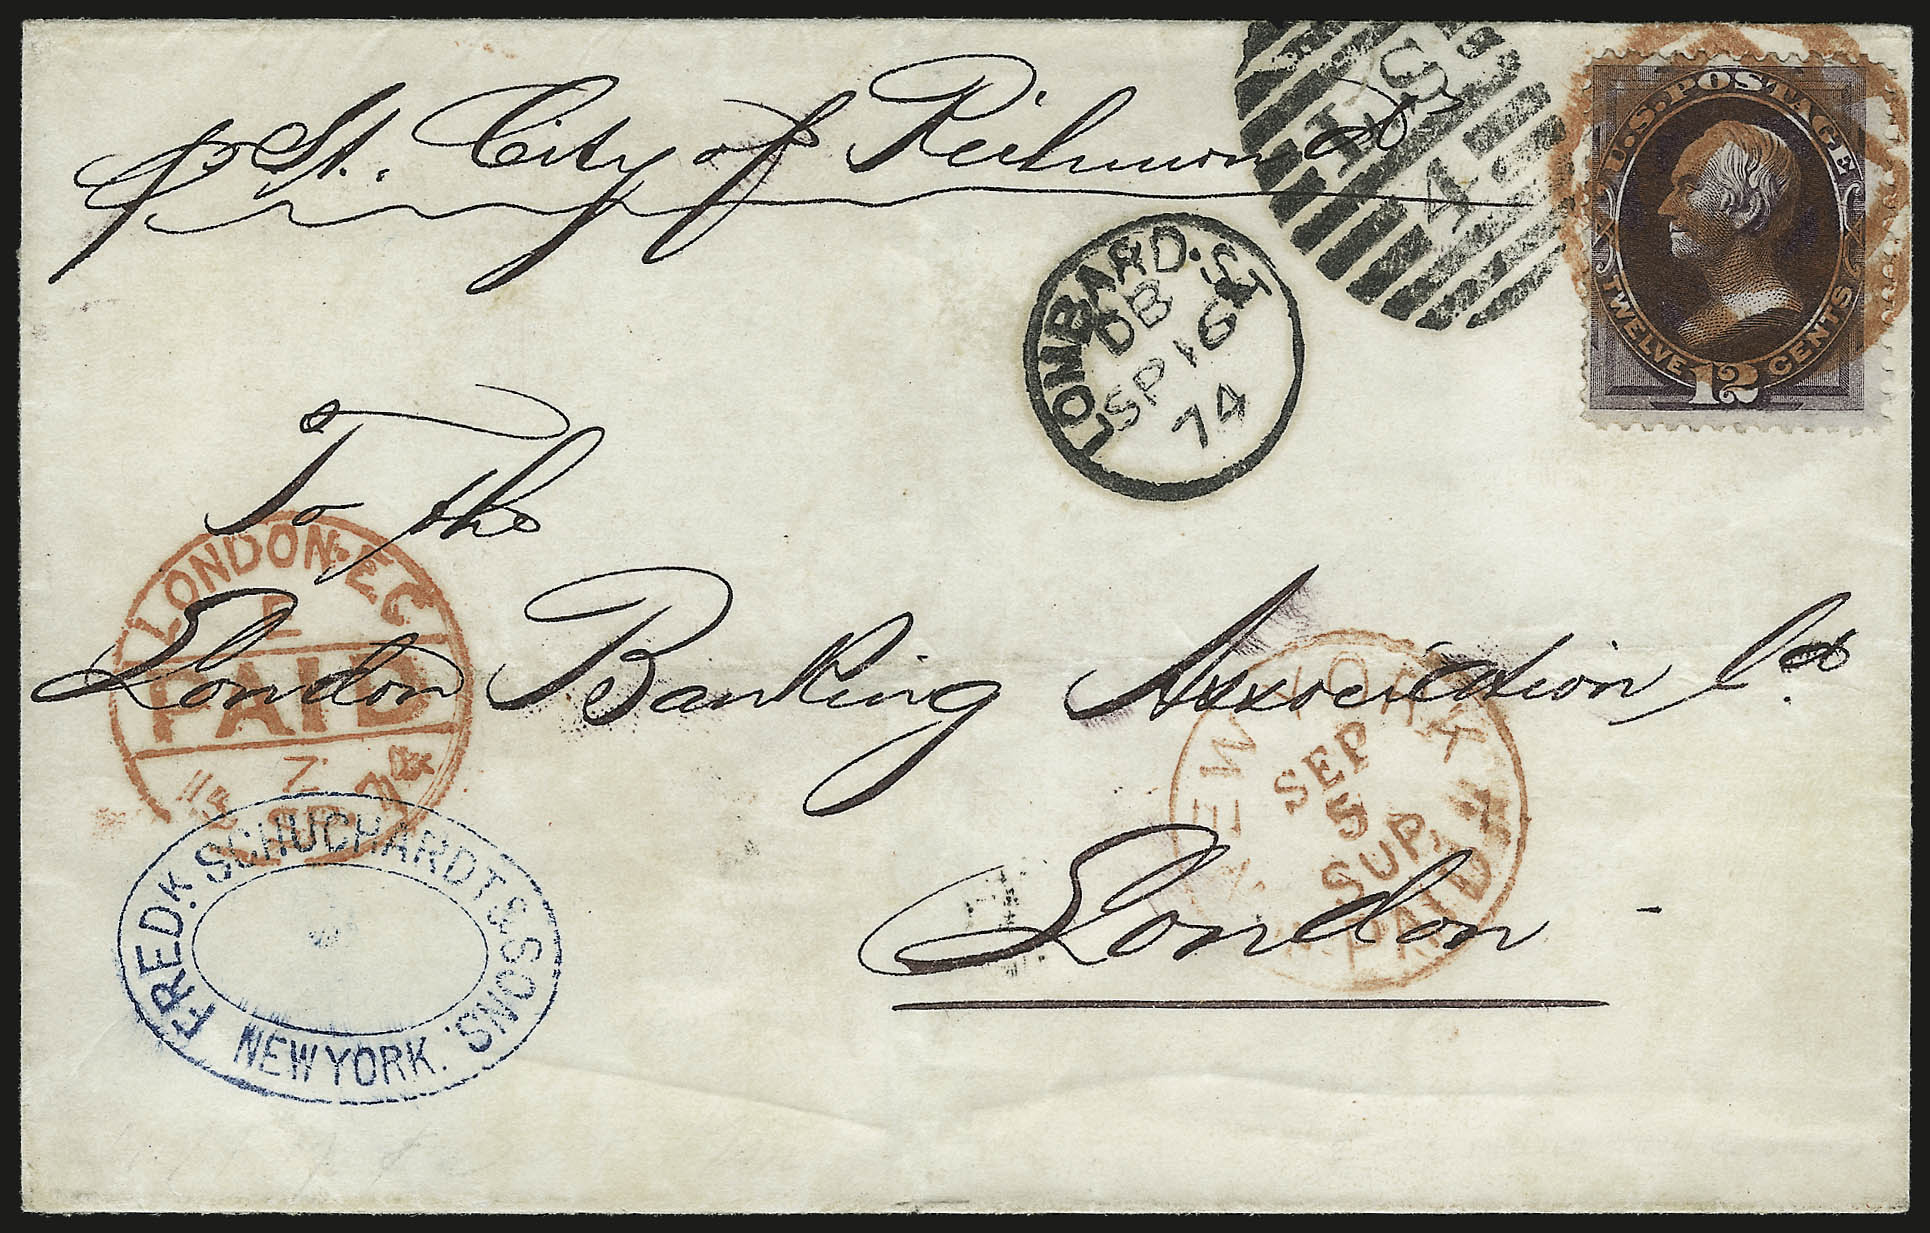 p St. City of Richmond
U.S. POSTAGE
TWELVE 12 CENTS
LOMBARD. ST
DB
SP 16
74
To the
London Banking Association Ld
London
LONDON. EC
PAID
74
NEW YORK
SEP
5
SUP.
PAID
FREDK. SCHUCHARDT & SONS.
NEW YORK.